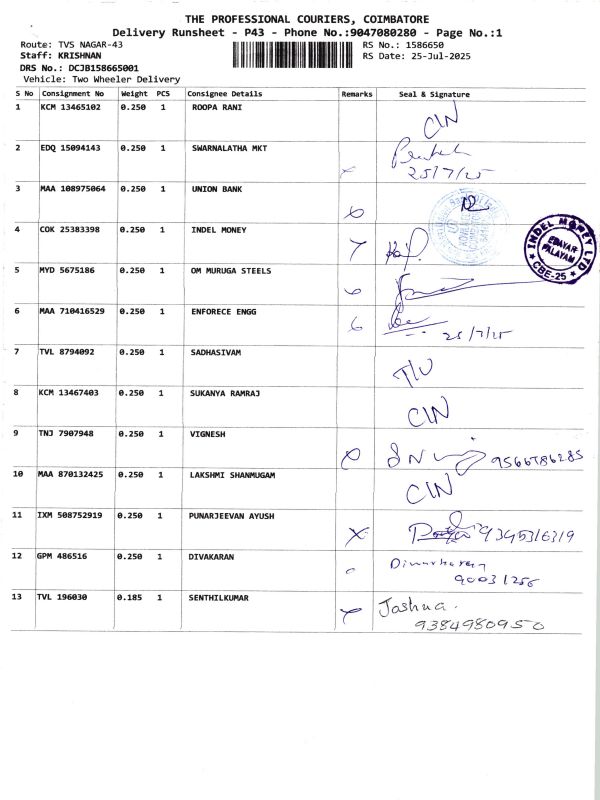 THE PROFESSIONAL COURIERS, COIMBATORE
Delivery Runsheet - P43 - Phone No.:9047080280 - Page No.:1
Route: TVS NAGAR-43 RS No.: 1586650
Staff: KRISHNAN RS Date: 25-Jul-2025
DRS No.: DCJB158665001
Vehicle: Two Wheeler Delivery
S No Consignment No Weight PCS Consignee Details Remarks Seal & Signature
1 KCM 13465102 0.250 1 ROOPA RANI CIN
2 EDQ 15094143 0.250 1 SWARNALATHA MKT
25/7/25
3 MAA 108975064 0.250 1 UNION BANK
4 COK 25383398 0.250 1 INDEL MONEY
INDEL MONEY LTD
EDAYAR
PALAYAM
CBE-25
5 MYD 5675186 0.250 1 OM MURUGA STEELS
6 MAA 710416529 0.250 1 ENFORECE ENGG
25/7/25
7 TVL 8794092 0.250 1 SADHASIVAM
8 KCM 13467403 0.250 1 SUKANYA RAMRAJ CIN
9 TNJ 7907948 0.250 1 VIGNESH
10 MAA 870132425 0.250 1 LAKSHMI SHANMUGAM CIN
11 IXM 508752919 0.250 1 PUNARJEEVAN AYUSH
12 GPM 486516 0.250 1 DIVAKARAN
13 TVL 196030 0.185 1 SENTHILKUMAR Jashua.
9384980950